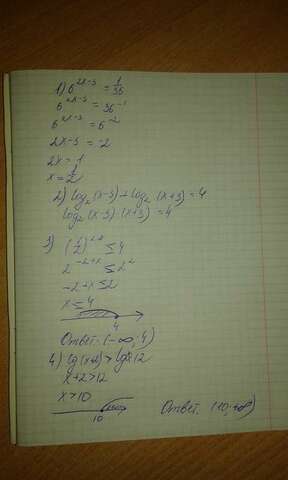 1) 6^{2x-3} = 1/36
6^{2x-3} = 36^{-1}
6^{2x-3} = 6^{-2}
2x-3 = -2
2x = 1
x = 1/2
2) log₂(x-3) + log₂(x+3) = 4
log₂(x-3)·(x+3) = 4
3) (1/2)^{2-x} ≤ 4
2^{-2+x} ≤ 2²
-2+x ≤ 2
x ≤ 4
4
Ответ: (-∞, 4)
4) lg(x+2) > lg 12
x+2 > 12
x > 10
10
Ответ: (10, +∞)